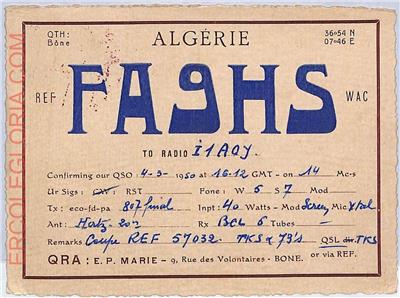 QTH: Bône ALGÉRIE 36°54 N 07°46 E
REF FA9HS WAC
TO RADIO i1AQY.
Confirming our QSO: 4-9-1950 at 16-12 GMT - on 14 Mc-s
Ur Sigs: CW: RST Fone: W 5 S 7 Mod
Tx: eco-fd-pa 807 final Inpt: 40 Watts - Mod Screen Mic Xtal
Ant: Hertz-20m Rx: BCL 6 Tubes
Remarks Coupe REF 57032. TKS & 73's QSL dir. TKS
QRA: E. P. MARIE - 9, Rue des Volontaires - BONE. or via REF.
ERCOLEGLORIA.COM